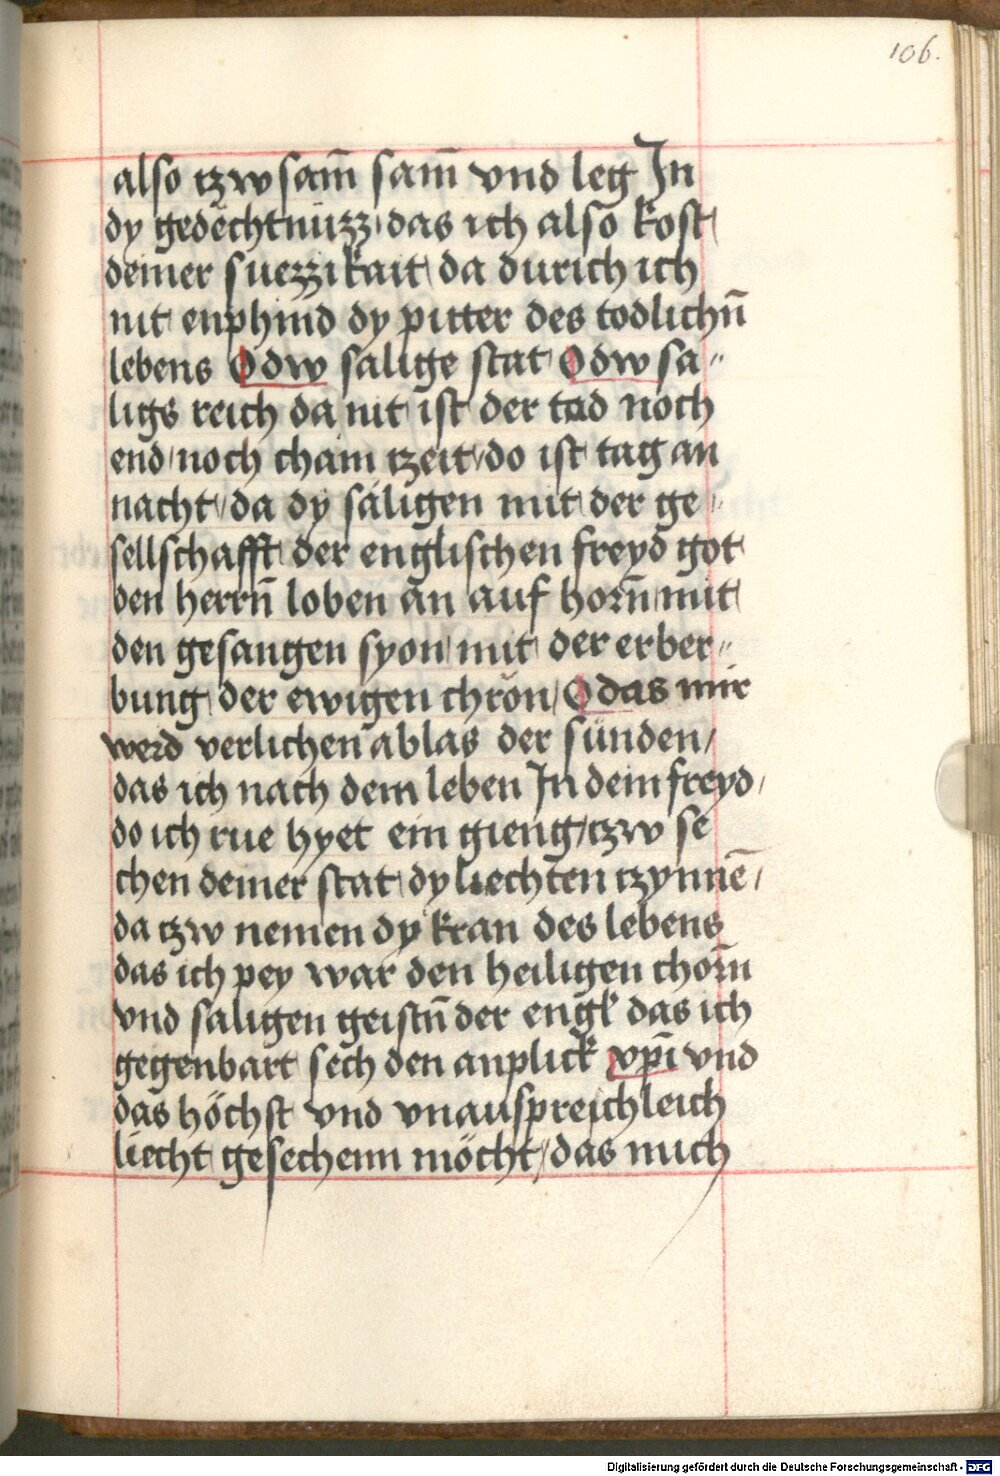 106.
also tzw sam̄ sam̄ vnd leg In
dy gedëchtnüzz das ich also kost
deiner suezzikait da durich ich
nit enphind dy pitter des todlichn̄
lebens O dw salige stat O dw sa„
ligs reich da nit ist der tod noch
end noch chain tzeit do ist tag an
nacht da dy säligen mit der ge„
sellschafft der englischen freyd got
den herrn̄ loben an auf horn̄ mit
den gesangen syon mit der erber„
bung der ewigen chrön O das mir
werd verlichen ablas der sünden
das ich nach dem leben In dein freyd
do ich rue hyet ein gieng tzw se
chen deiner stat dy liechten tzynnē
da tzw nemen dy kran des lebens
das ich pey war den heiligen chorn̄
vnd saligen geistn̄ der engl das ich
gegenbart sech den anplick xpī vnd
das höchst vnd vnauspreichleich
liecht gesechenn möcht das mich
Digitalisierung gefördert durch die Deutsche Forschungsgemeinschaft - DFG